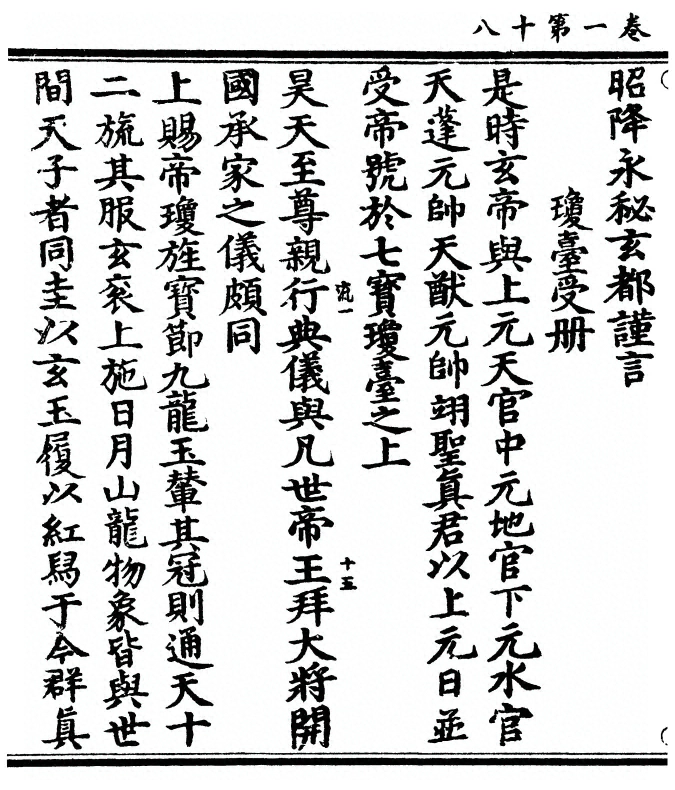 八十第一卷
昭降永秘玄都謹言
瓊臺受册
是時玄帝與上元天官中元地官下元水官
天蓬元帥天猷元帥翊聖真君以上元日並
受帝號於七寶瓊臺之上
昊天至尊親行典儀與凡世帝王拜大將開
流一
十五
國承家之儀頗同
上賜帝瓊旌寶節九龍玉輦其冠則通天十
二旒其服玄衮上施日月山龍物象皆與世
間天子者同圭以玄玉履以紅舄于今群真